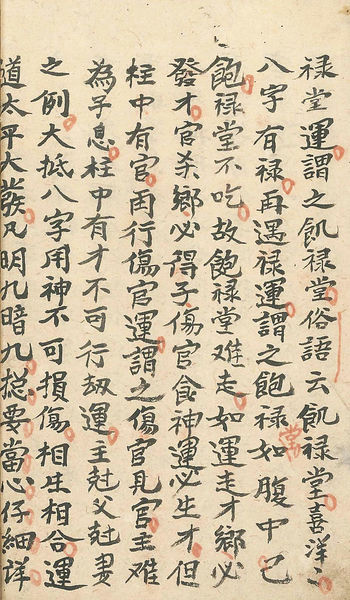 禄堂運謂之飢禄堂俗語云飢禄堂喜洋〻
八字有禄再遇禄運謂之飽禄如腹中已
常
飽禄堂不吃故飽禄堂难走如運走才鄉必
發才官杀鄉必得子傷官食神運必生才但
柱中有官再行傷官運謂之傷官見官主难
為子息柱中有才不可行刼運主尅父尅妻
之例大抵八字用神不可損傷相生相合運
道太平大發凡明九暗九捴要當心仔細詳